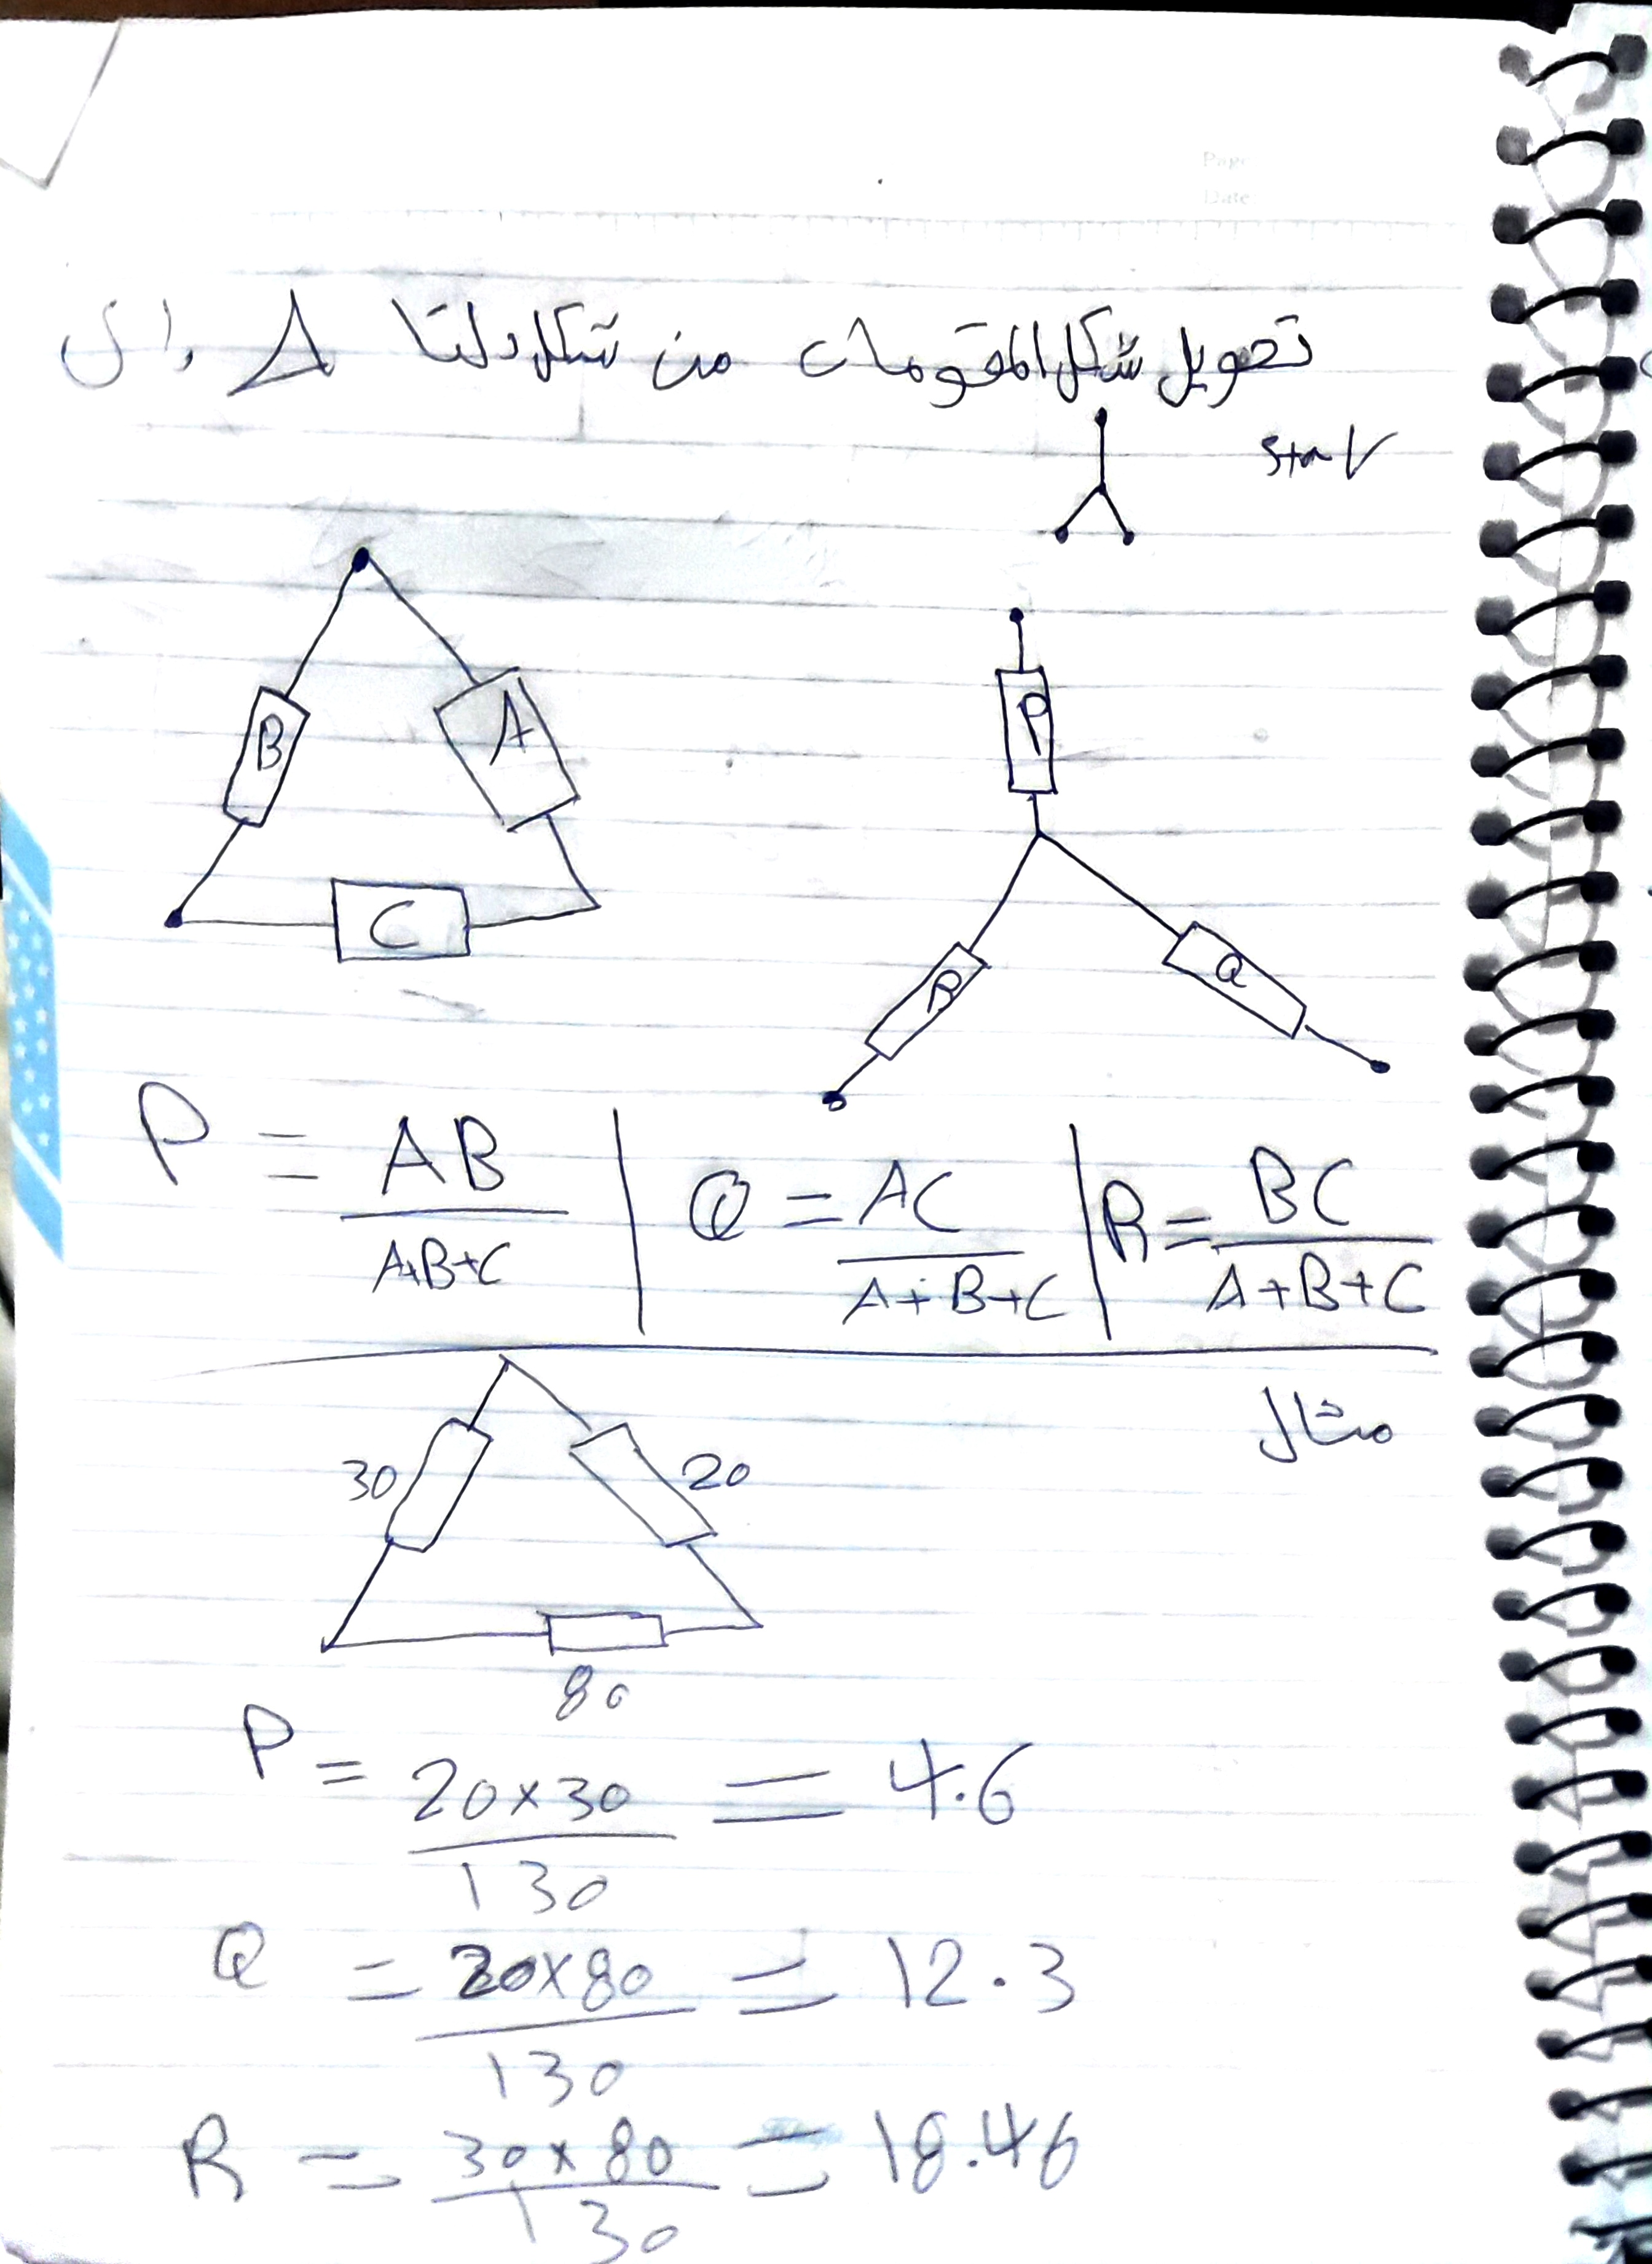 Page
Date
تحويل شكل المقومات من شكل دلتا Δ إلى
star
B
A
P
C
R
Q
P = AB / A+B+C | Q = AC / A+B+C | R = BC / A+B+C
مثال
30
20
80
P = 20×30 / 130 = 4.6
Q = 20×80 / 130 = 12.3
R = 30×80 / 130 = 18.46